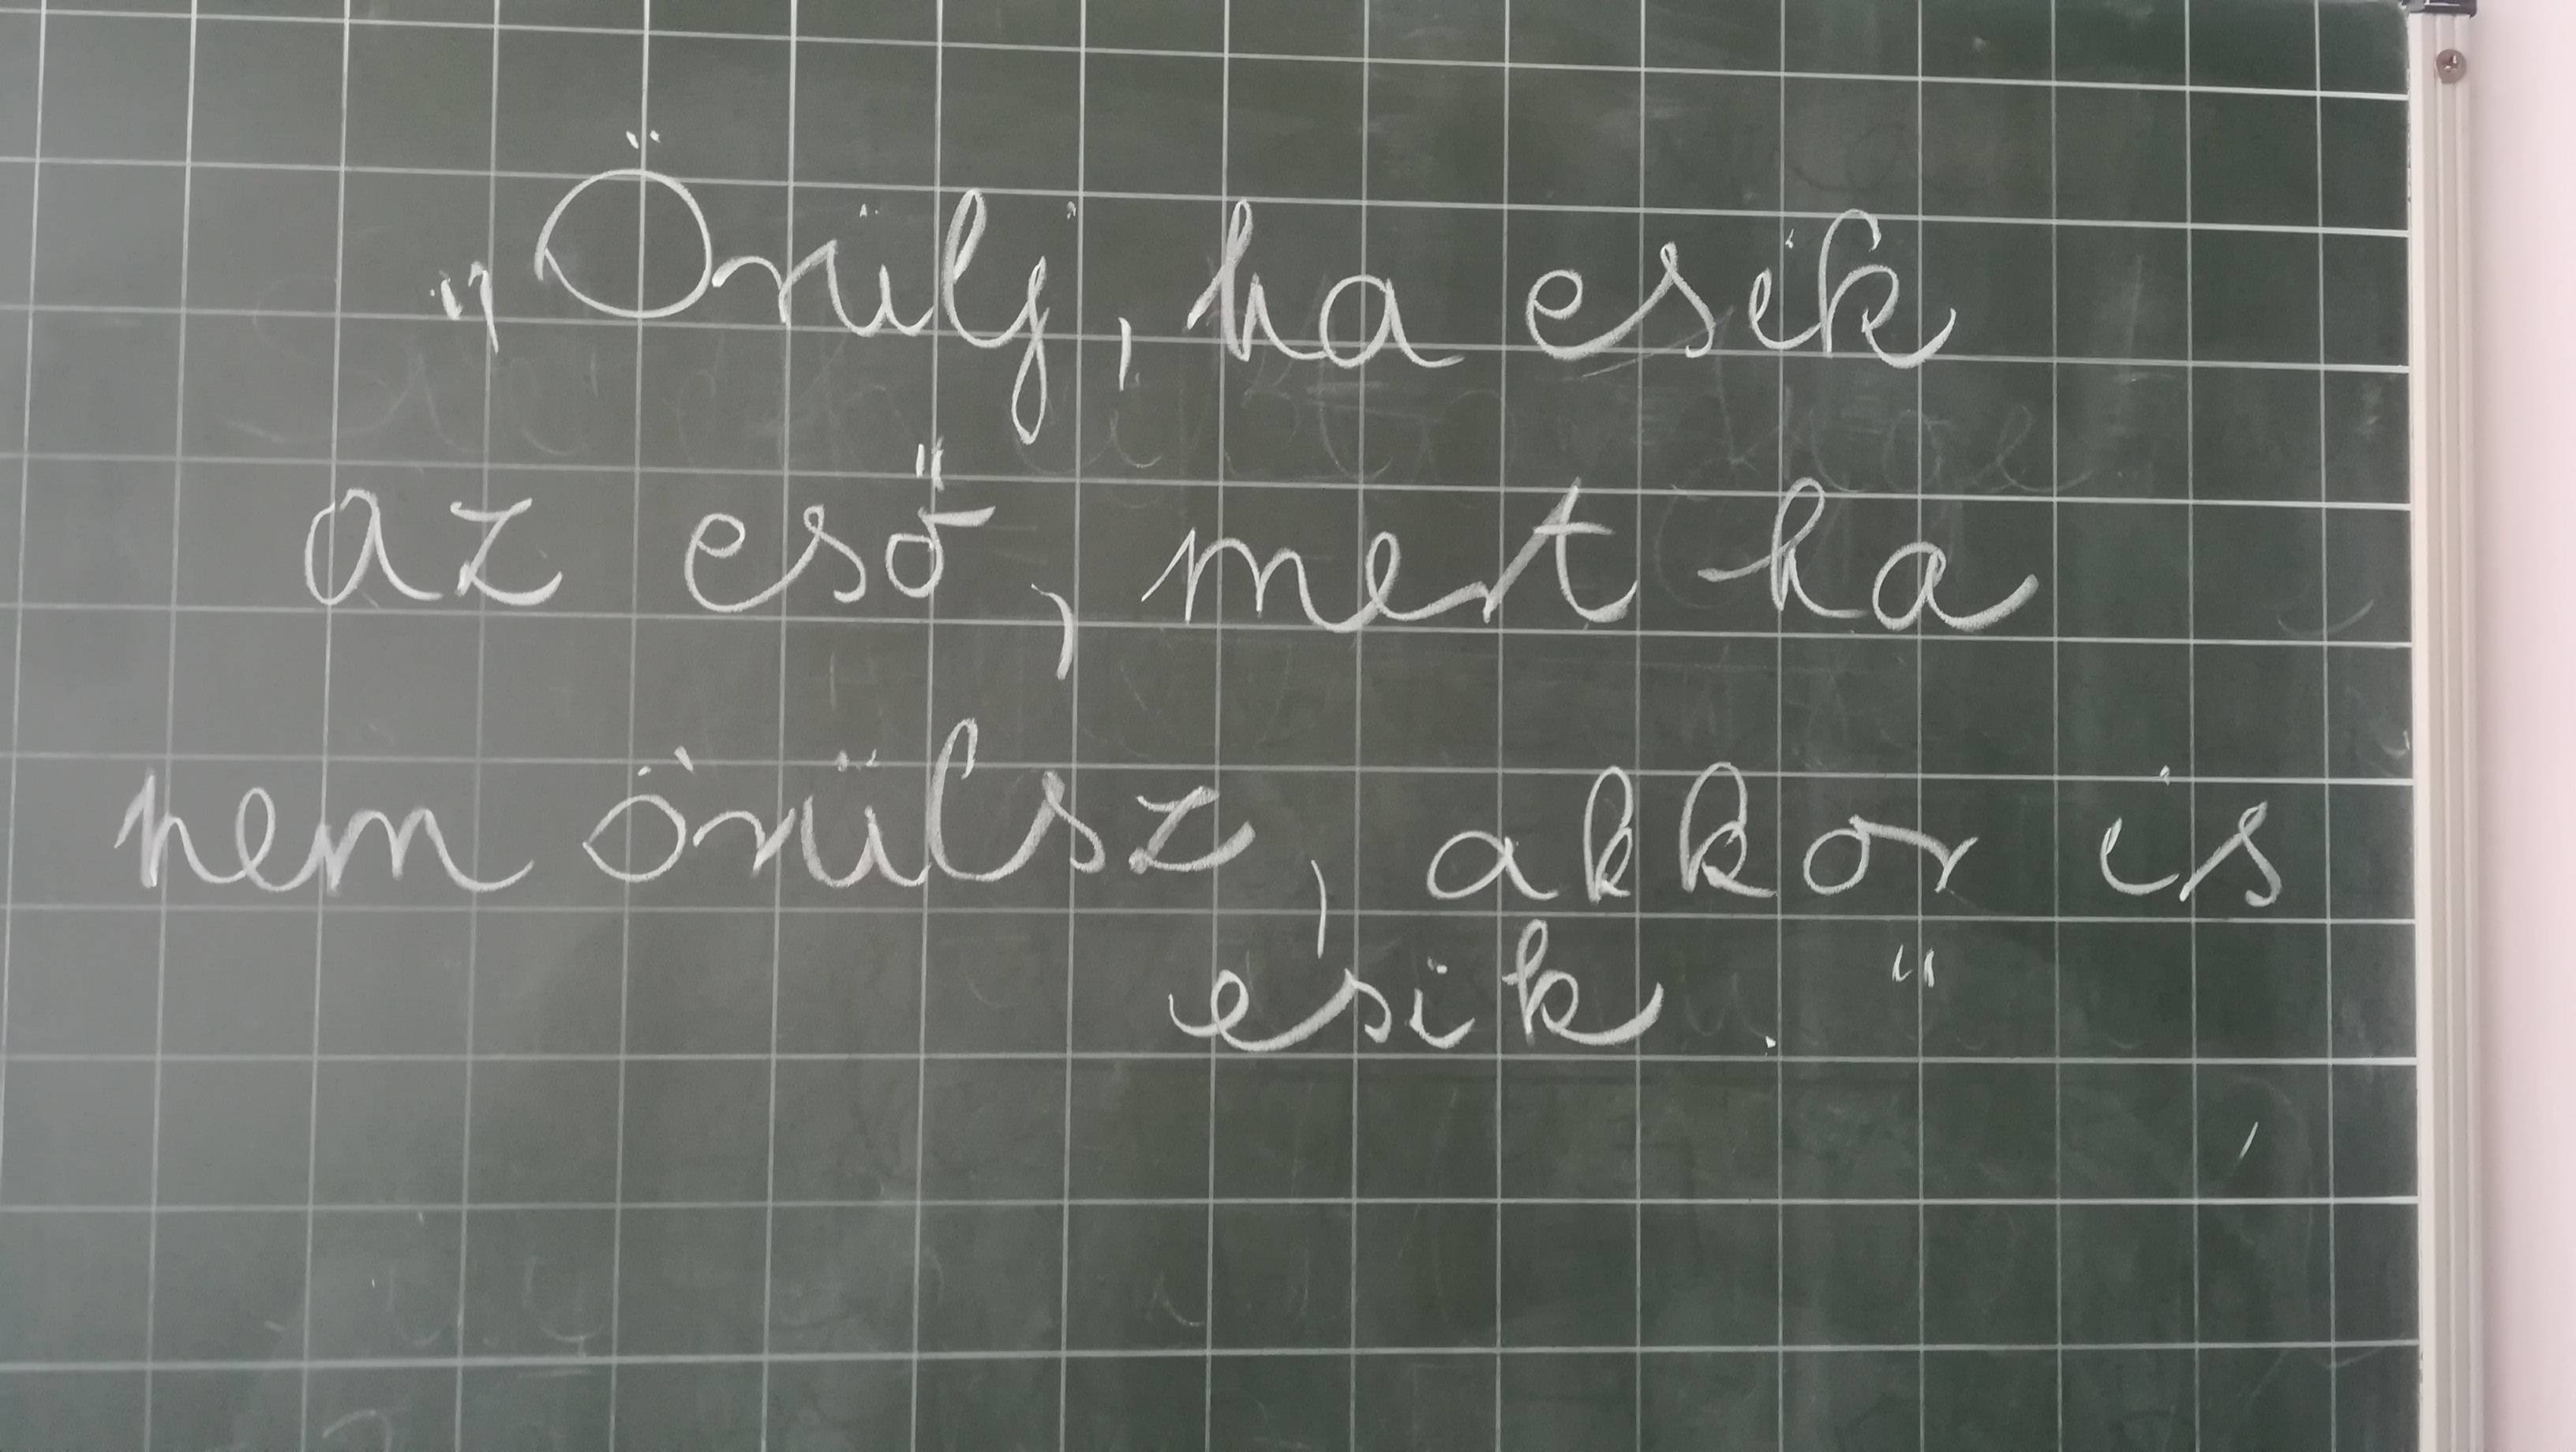 „Örülj, ha esik
az eső, mert ha
nem örülsz, akkor is
esik."